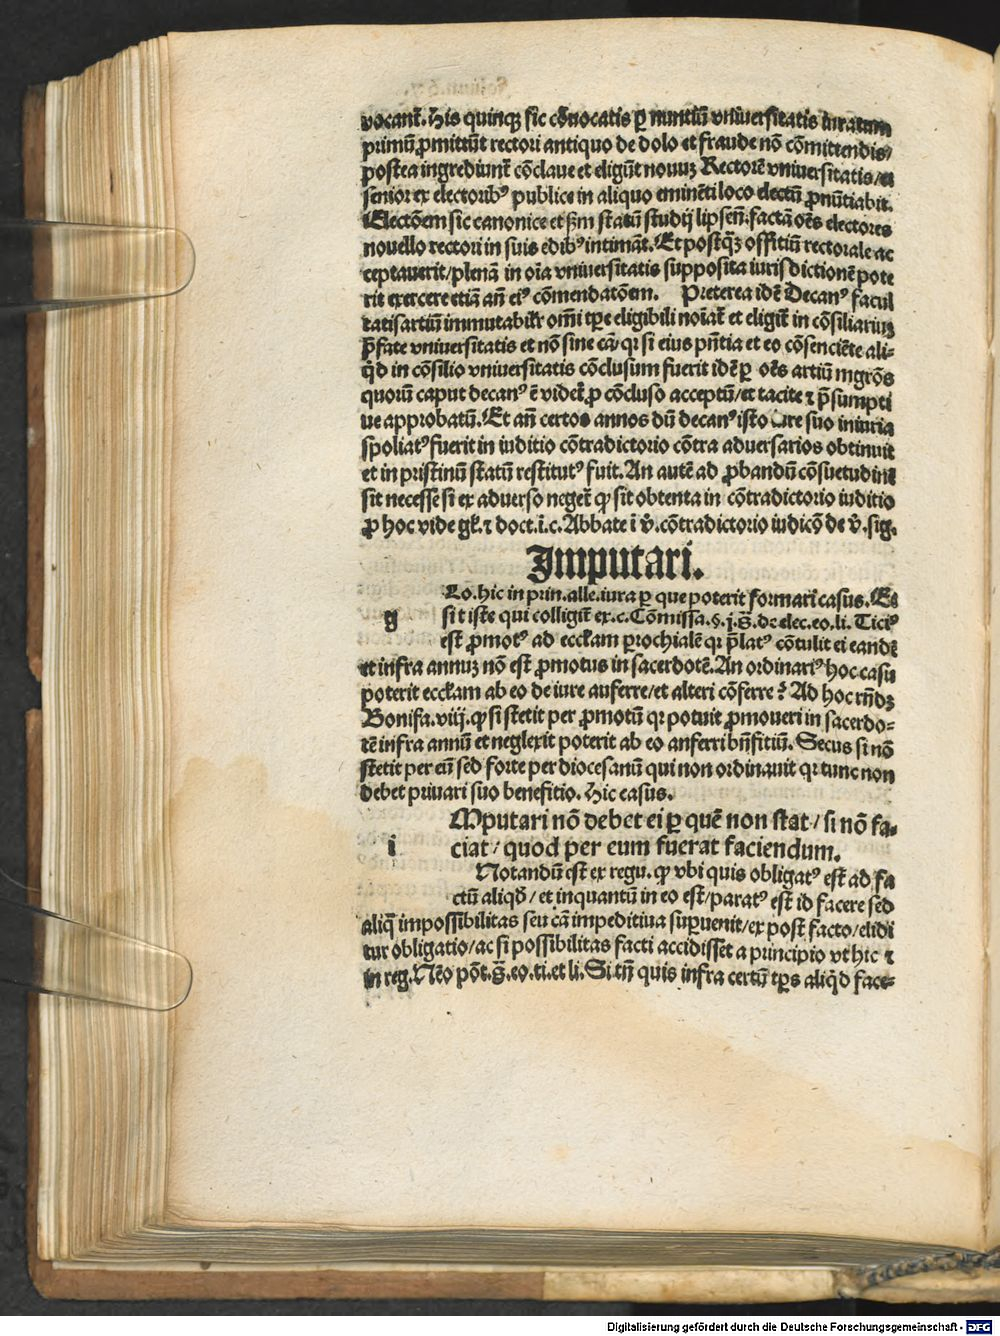 vocant̃. His quinqꝫ sic cõuocatis ꝑ nuntiũ vniuersitatis iuratum
primũ ꝓmittũt rectori antiquo de dolo et fraude non cõmittendis/
postea ingrediunt̃ cõclaue et eligũt nouuꝫ Rectorẽ vniuersitatis/et
senior ex electoribꝰ publice in aliquo eminẽti loco electũ ꝓnũtiabit.
Electõem sic canonice et ẜm statũ studij lipseñ. factã oẽs electores
nouello rectori in suis edibꝰ intimãt. Et postq̃ꝫ offitiũ rectorale ac
ceptauerit/plenã in oĩa vniuersitatis supposita iurisdictionẽ pote
rit exercere etiã añ eiꝰ cõmendatõem. Preterea idẽ Decanꝰ facul
tatis artiũ immutabilr̃ omĩ tꝑe eligibili noĩat̃ et eligit̃ in cõsiliariuꝫ
p̃fate vniuersitatis et nõ sine cã/ qꝛ si eius pñtia et eo cõsenciẽte ali-
q̃d in cõsilio vniuersitatis cõclusum fuerit idẽ ꝑ oẽs artiũ mgr̃os
quoꝝ caput decanꝰ ẽ videt̃ ꝓ cõcluso acceptũ/et tacite ⁊ p̃sumpti
ue approbatũ. Et añ certos annos dũ decanꝰ isto iure suo iniuria
spoliatꝰ fuerit in iuditio cõtradictorio cõtra aduersarios obtinuit
et in pristinũ statũ restitutꝰ fuit. An autẽ ad ꝓbandũ cõsuetudinẽ
sit necesse si ex aduerso neget̃ ꝙ sit obtenta in cõtradictorio iuditio
ꝓ hoc vide gl̃. ⁊ doct. i. c. Abbate ĩ v̉. cõtradictorio iudicõ de v̉. sig.
Imputari.
g Lo. hic in prin. alle. iura ꝑ que poterit formari casus. Et
sit iste qui colligit̃ ex. c. Cõmissa. §. j. s̃. de elec. eo. li. Ticiꝰ
est ꝓmotꝰ ad eccl̃am ꝑrochialẽ qꝛ p̃latꝰ cõtulit ei eandẽ
et infra annuꝫ nõ est ꝓmotus in sacerdotẽ. An ordinariꝰ hoc casu
poterit eccl̃am ab eo de iure auferre/et alteri cõferre? Ad hoc rñdꝫ
Bonifa. viij. ꝙ si stetit per ꝓmotũ qꝛ potuit ꝓmoueri in sacerdo-
tẽ infra annũ et neglexit poterit ab eo anferri bñfitiũ. Secus si nõ
stetit per eũ sed forte per diocesanũ qui non ordinauit qꝛ tunc non
debet priuari suo benefitio. Hic casus.
i Mputari nõ debet ei ꝑ quẽ non stat/ si nõ fa-
ciat/ quod per eum fuerat faciendum.
Notandũ est ex regu. ꝙ vbi quis obligatꝰ est ad fa
ctũ aliqḋ/ et inquantũ in eo est/paratꝰ est id facere sed
aliq̃ impossibilitas seu cã impeditiua suꝑuenit/ex post facto/elidi
tur obligatio/ac si possibilitas facti accidisset a principio vt hic ⁊
in reg. Nẽo põt. s̃. eo. ti. et li. Si tñ quis infra certũ tꝑs aliq̃d face-
Digitalisierung gefördert durch die Deutsche Forschungsgemeinschaft - DFG